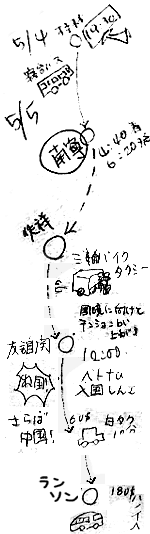 5/4
19:30
寝台バス
5/5
南寧
4:40着
6:20発
凭祥
三輪バイク
タクシー
国境に付けど
テンション
上がる
友誼関
10:00
ベトナム
入国
出国
さらば
中国!
白タク
ラン
ソン
180$
ハノイへ